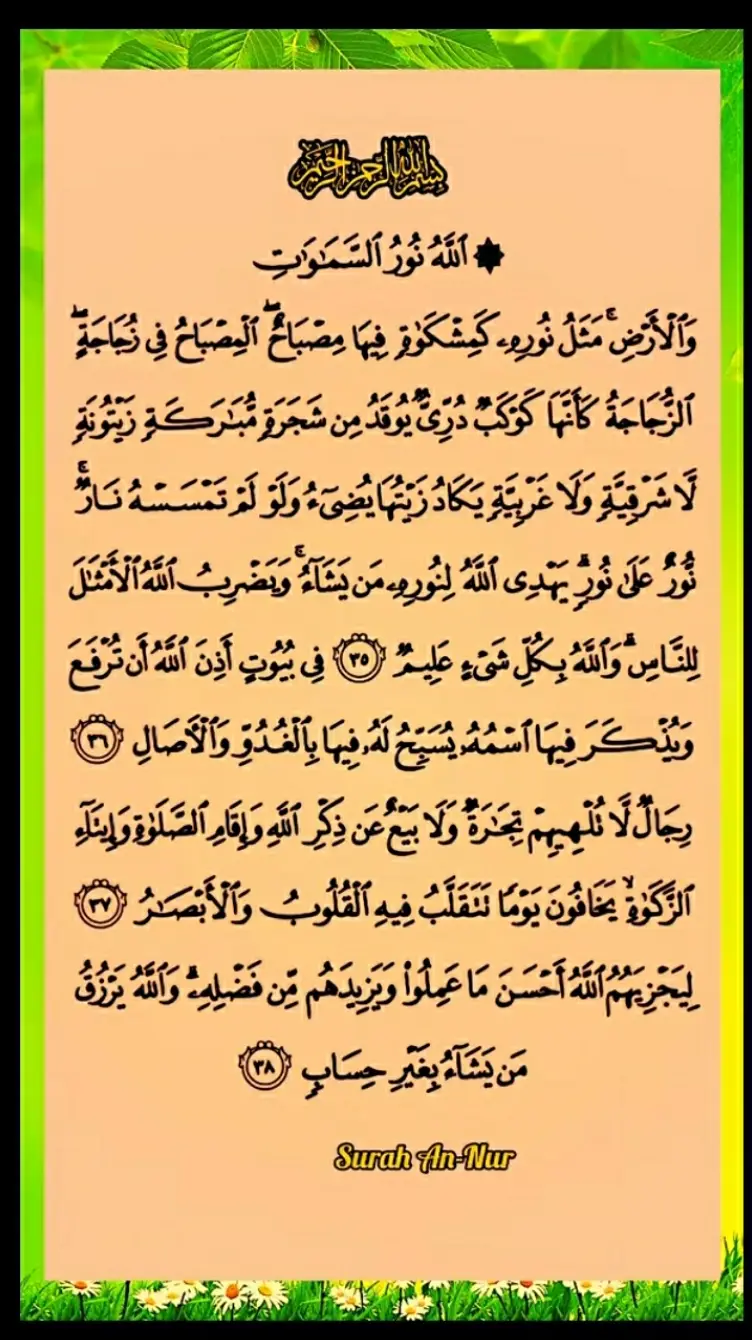 بِسْمِ ٱللَّهِ ٱلرَّحْمَٰنِ ٱلرَّحِيمِ
۞ ٱللَّهُ نُورُ ٱلسَّمَٰوَٰتِ
وَٱلْأَرْضِ ۚ مَثَلُ نُورِهِۦ كَمِشْكَوٰةٍ فِيهَا مِصْبَاحٌ ۖ ٱلْمِصْبَاحُ فِى زُجَاجَةٍ ۖ
ٱلزُّجَاجَةُ كَأَنَّهَا كَوْكَبٌ دُرِّىٌّ يُوقَدُ مِن شَجَرَةٍ مُّبَٰرَكَةٍ زَيْتُونَةٍ
لَّا شَرْقِيَّةٍ وَلَا غَرْبِيَّةٍ يَكَادُ زَيْتُهَا يُضِىٓءُ وَلَوْ لَمْ تَمْسَسْهُ نَارٌ ۚ
نُّورٌ عَلَىٰ نُورٍ ۗ يَهْدِى ٱللَّهُ لِنُورِهِۦ مَن يَشَآءُ ۚ وَيَضْرِبُ ٱللَّهُ ٱلْأَمْثَٰلَ
لِلنَّاسِ ۗ وَٱللَّهُ بِكُلِّ شَىْءٍ عَلِيمٌ ٣٥ فِى بُيُوتٍ أَذِنَ ٱللَّهُ أَن تُرْفَعَ
وَيُذْكَرَ فِيهَا ٱسْمُهُۥ يُسَبِّحُ لَهُۥ فِيهَا بِٱلْغُدُوِّ وَٱلْءَاصَالِ ٣٦
رِجَالٌ لَّا تُلْهِيهِمْ تِجَٰرَةٌ وَلَا بَيْعٌ عَن ذِكْرِ ٱللَّهِ وَإِقَامِ ٱلصَّلَوٰةِ وَإِيتَآءِ
ٱلزَّكَوٰةِ ۙ يَخَافُونَ يَوْمًا تَتَقَلَّبُ فِيهِ ٱلْقُلُوبُ وَٱلْأَبْصَٰرُ ٣٧
لِيَجْزِيَهُمُ ٱللَّهُ أَحْسَنَ مَا عَمِلُوا۟ وَيَزِيدَهُم مِّن فَضْلِهِۦ ۗ وَٱللَّهُ يَرْزُقُ
مَن يَشَآءُ بِغَيْرِ حِسَابٍ ٣٨
Surah An-Nur